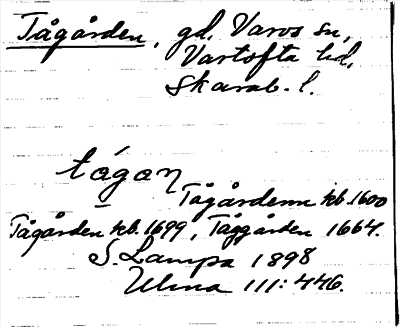 Tågården, gd, Varvs sn,
Vartofta hd,
Skarab. l.
tågaɳ
Tågårdenn kb. 1600
Tågården kb. 1699, Tåggården 1664.
S. Lampa 1898
Ulma 111:446.